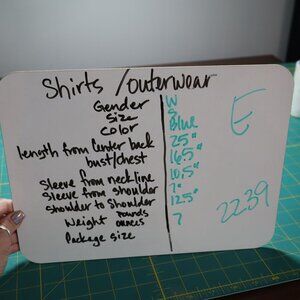 Shirts / outerwear
Gender W
Size S
Color Blue
length from center back 25"
bust/chest 16.5"
Sleeve from neckline 10.5"
Sleeve from shoulder 7"
shoulder to shoulder 12.5"
Weight pounds
ounces 7
Package size
E
2239